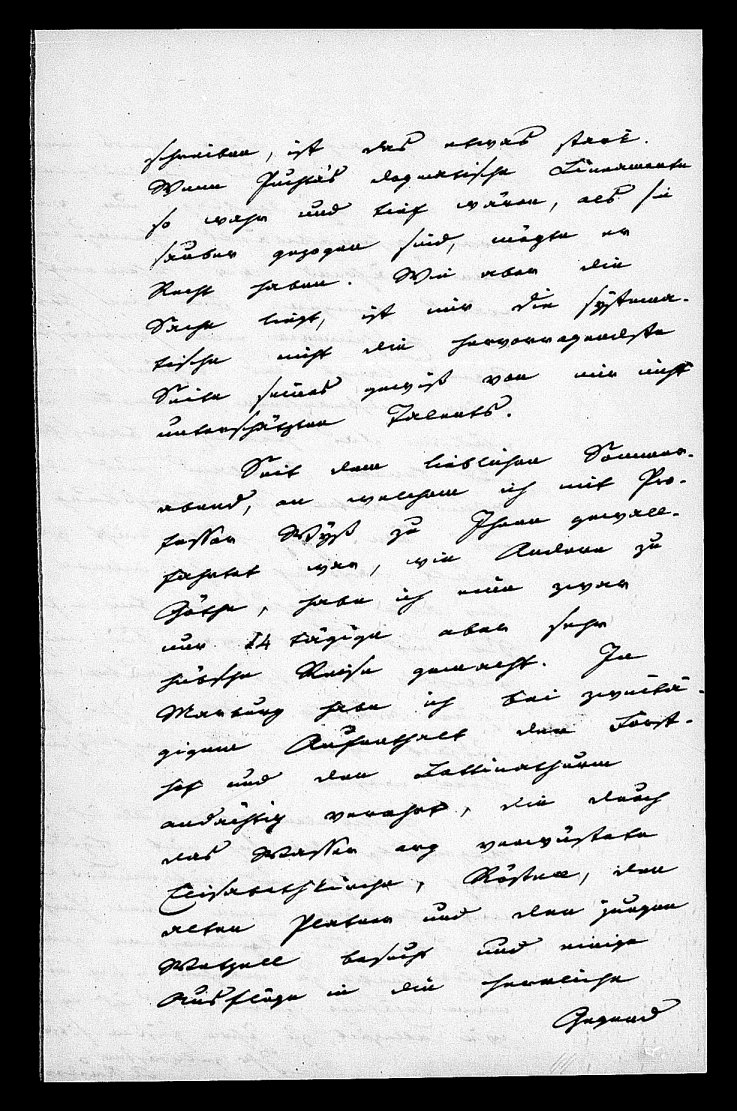 schreiben, ist das etwas stark.
Wenn Puchta's dogmatische Lineamente
so wahr und tief wären, als sie
sauber gezogen sind, mögte er
Recht haben. Wie aber die
Sache liegt, ist mir die systema-
tische nicht die hervorragendste
Seite seines gewiß von mir nicht
unterschätzten Talents.
Seit dem lieblichen Sommer-
abend, an welchem ich mit Pro-
fessor Wyß zu Ihnen gewall-
fahrtet war, wie Andere zu
Göthe, habe ich eine zwar
nur 14 tägige aber sehr
hübsche Reise gemacht. In
Marburg habe ich bei zweitä-
gigem Aufenthalt den Forst-
hof und den Bettinathurm
andächtig verehrt, die durch
das Wasser arg verwüstete
Elisabethkirche, Röstell, den
alten Platner und den jungen
Wetzell besucht und einige
Ausflüge in die herrliche
Gegend